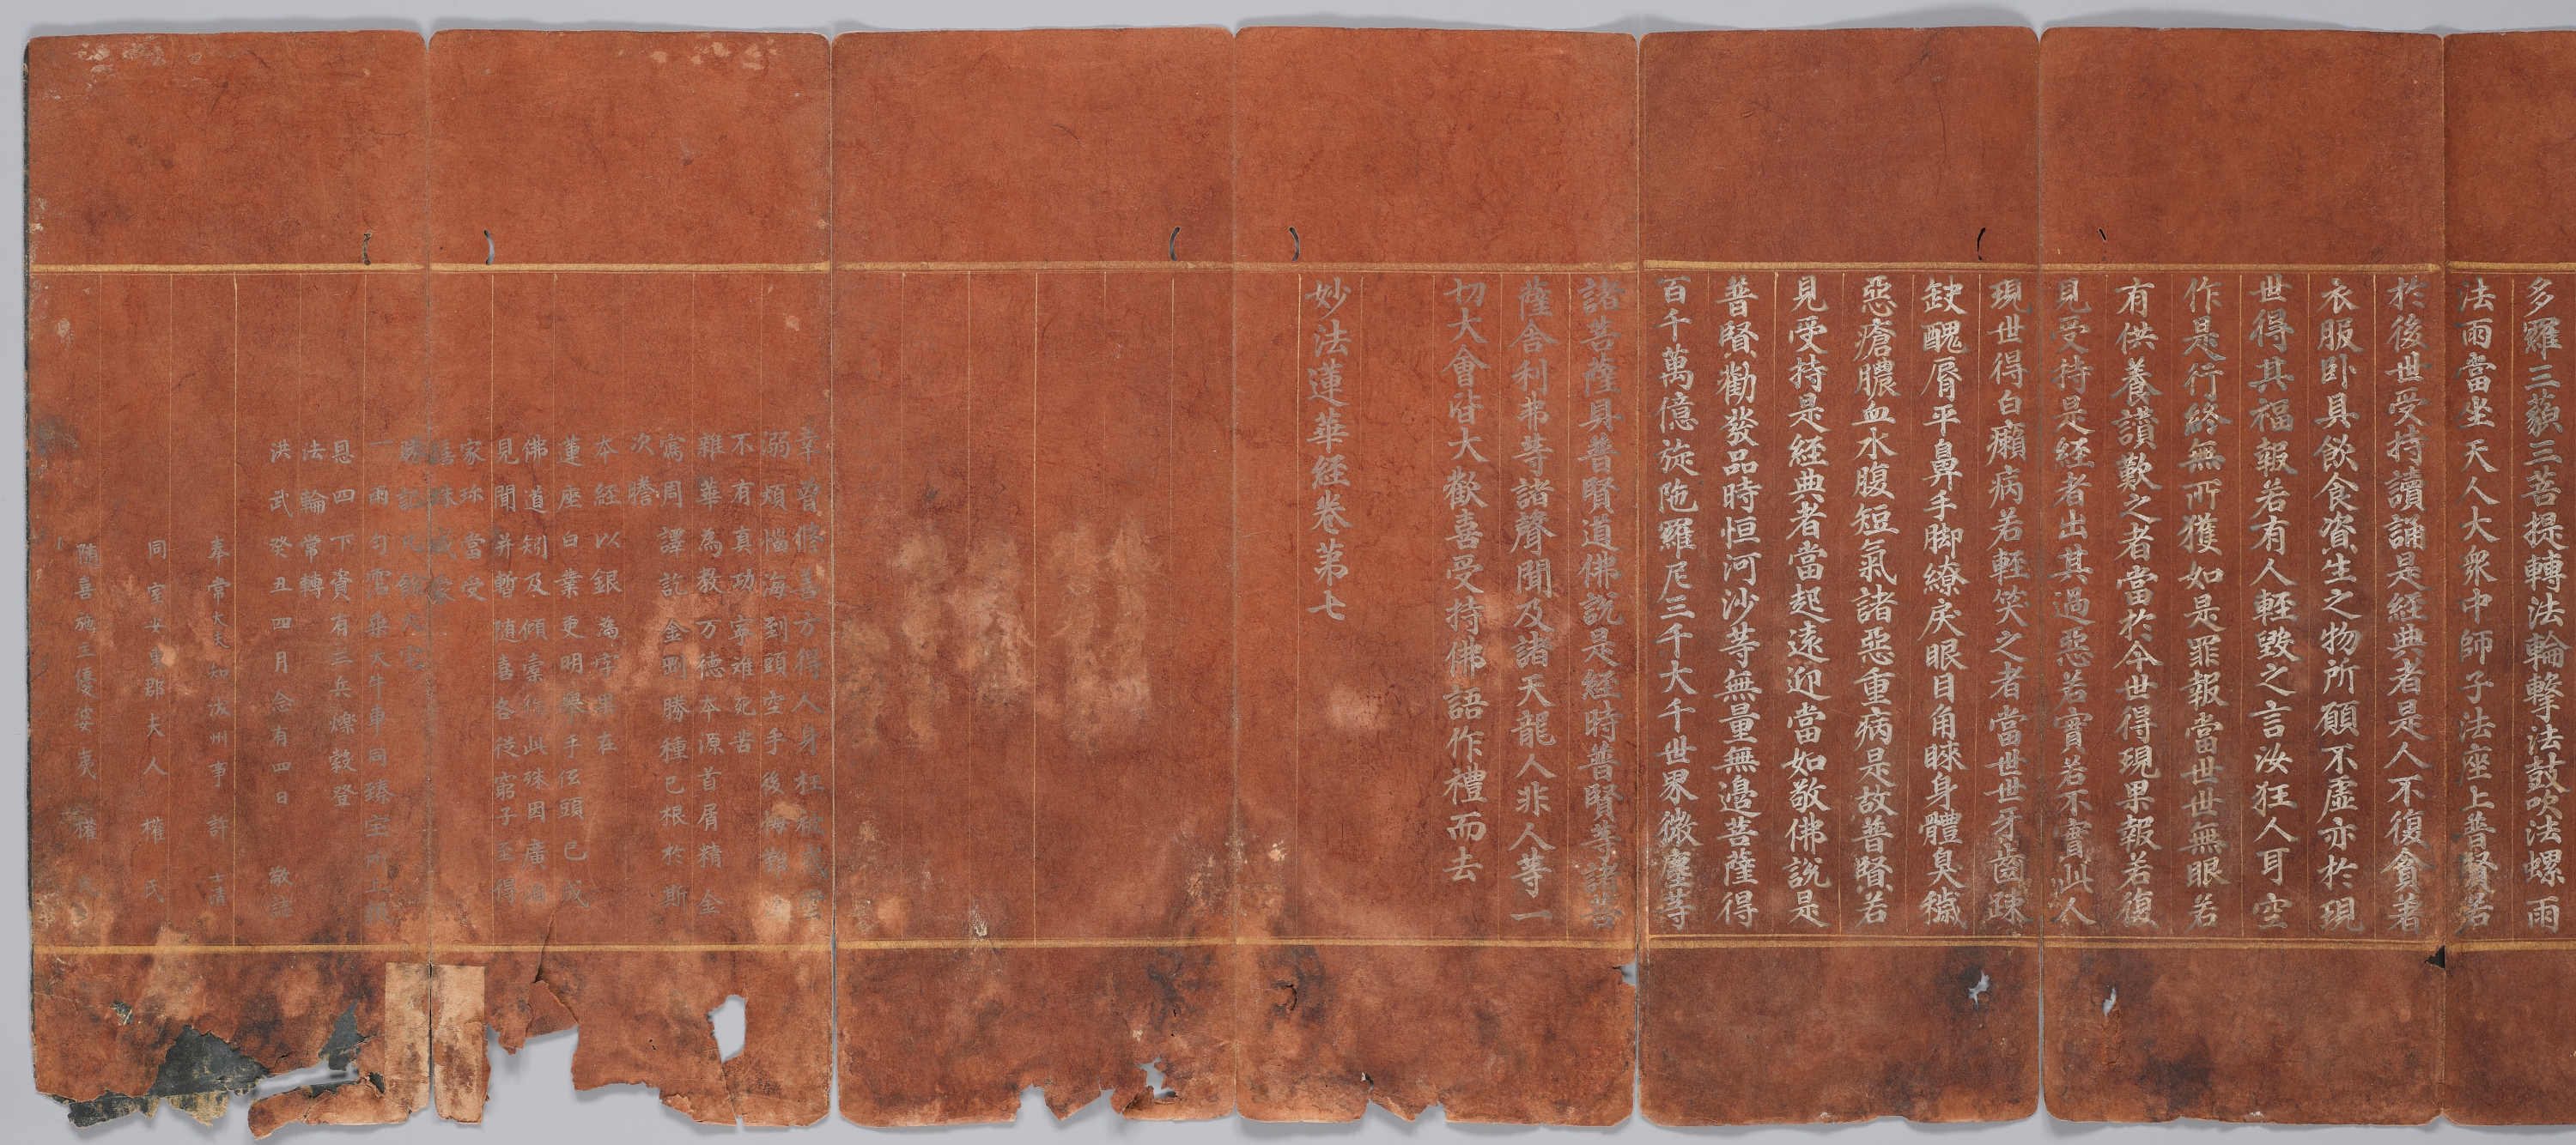 多羅三藐三菩提轉法輪擊法鼓吹法螺雨
法雨當坐天人大衆中師子法座上普賢若
於後世受持讀誦是経典者是人不復貪著
衣服卧具飲食資生之物所願不虛亦於現
世得其福報若有人輕毀之言汝狂人耳空
作是行終無所獲如是罪報當世世無眼若
有供養讃歎之者當於今世得現果報若復
見受持是経者出其過惡若實若不實此人
現世得白癩病若輕笑之者當世世牙齒踈
缺醜脣平鼻手脚繚戾眼目角睞身體臭穢
惡瘡膿血水腹短氣諸惡重病是故普賢若
見受持是経典者當起遠迎當如敬佛說是
普賢勸發品時恒河沙等無量無邊菩薩得
百千萬億旋陁羅尼三千大千世界微塵等
諸菩薩具普賢道佛說是経時普賢等諸菩
薩舎利弗等諸聲聞及諸天龍人非人等一
切大會皆大歡喜受持佛語作禮而去
妙法蓮華経卷第七
幸曾修善方得人身枉被
溺煩惱海到頭空手後悔難
不有真功寧難死苦
雜華為教万德本源首屑精金
寫周譯訖金剛勝種已根於斯
次謄
本経以銀為字果在
蓮座白業更明擧手伍頭已成
佛道矧及傾槖作此殊因廣
見聞并暫随喜各從窮子至得
家珎當受
一雨勻霑乗大牛車同臻宝所上報
恩四下資有三兵爍穀登
法輪常轉
洪武癸丑四月念有四日 敬誌
奉常大夫知 州事許士清
同室安東郡夫人權氏
随喜施主優婆夷權